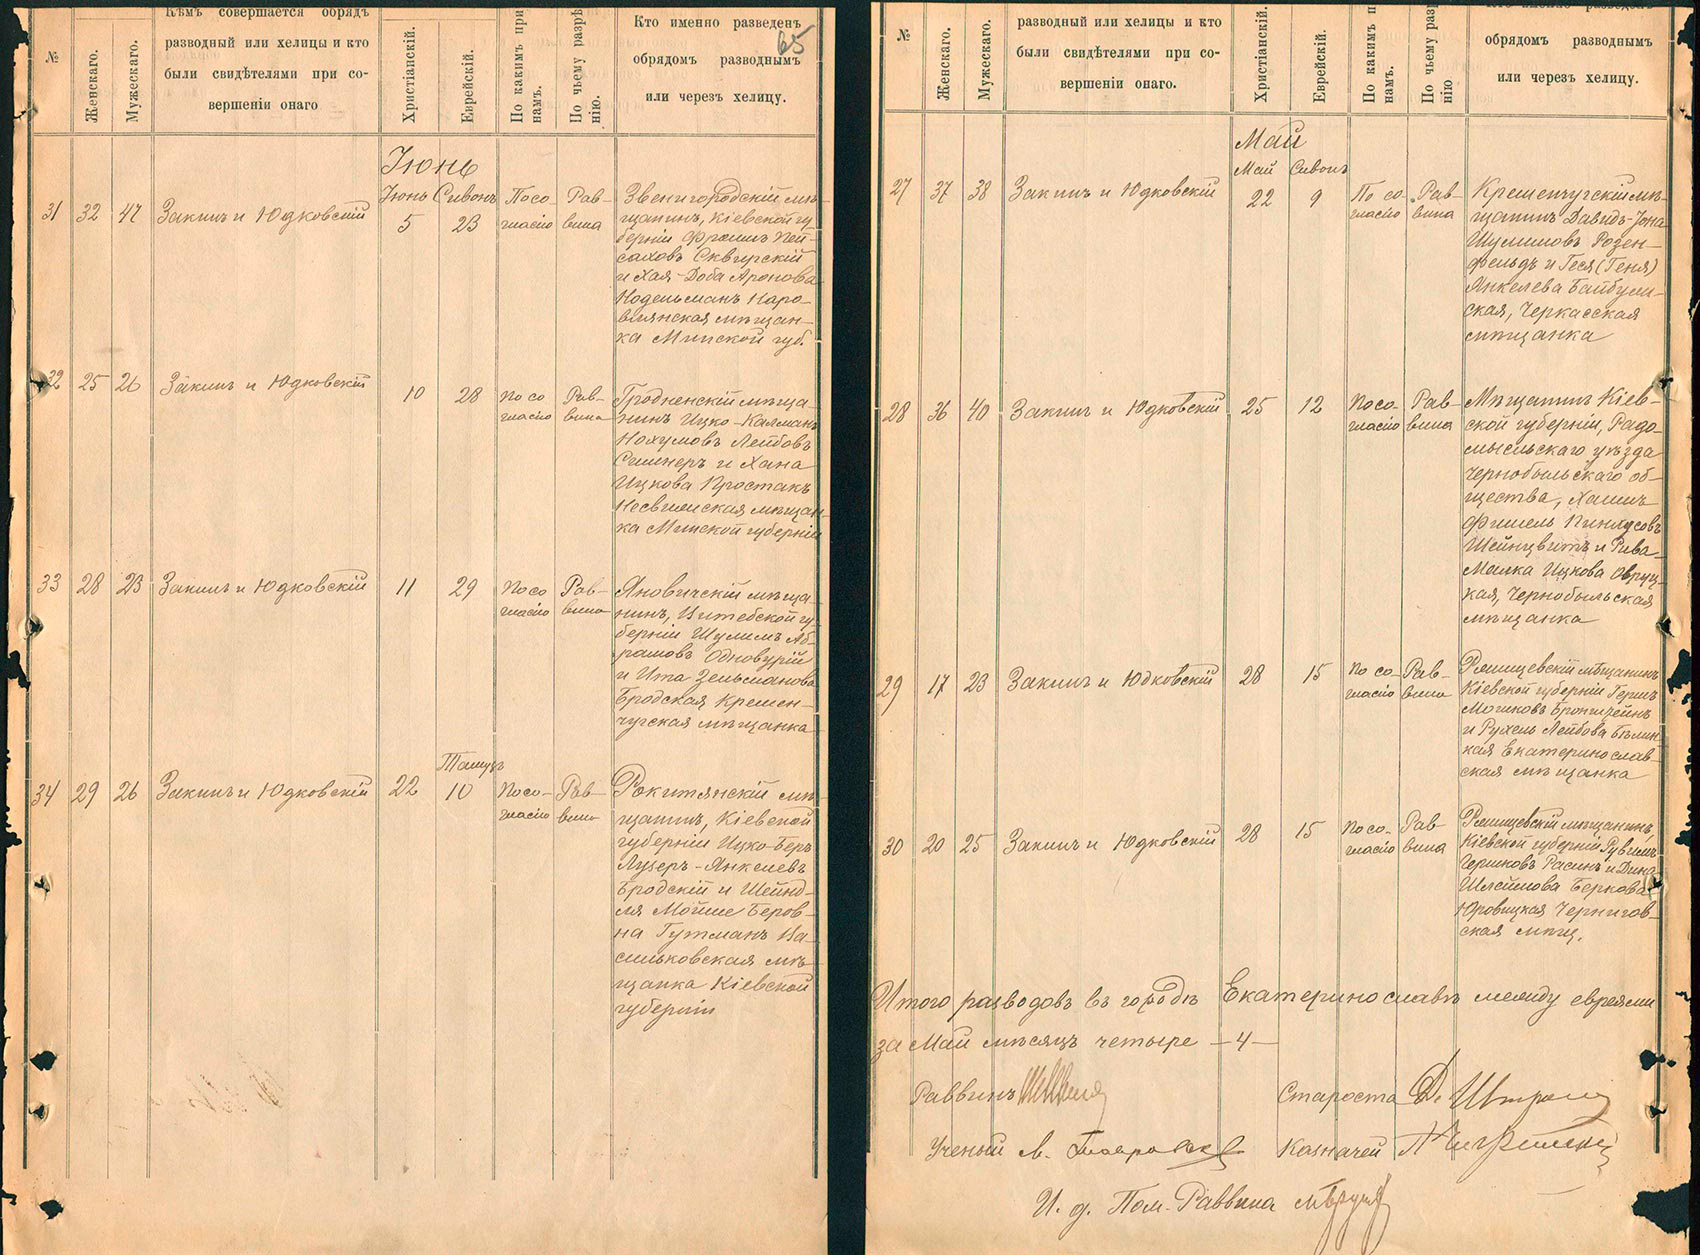 65
№
Женскаго.
Мужескаго.
Кѣмъ совершается обрядъ
разводный или хелицы и кто
были свидѣтелями при со-
вершеніи онаго
Христіанскій.
Еврейскій.
По какимъ при
намъ.
По чьему разрѣ
нію.
Кто именно разведенъ
обрядомъ разводнымъ
или черезъ хелицу.
Іюнь
Іюнь Сивонъ
31 32 47 Закинъ и Юдковскій 5 23 По со-
гласію Рав-
вина
Звенигородскій мѣ-
щанинъ, Кіевской гу
берніи Фроимъ Пей-
саховъ Сквирскій
и Хая-Доба Аронова
Нодельманъ Наро-
влянская мѣщан-
ка Минской губ.
32 25 26 Закинъ и Юдковскій 10 28 По со
гласію Рав-
вина
Гродненскій мѣща
нинъ Ицко-Калманъ
Нохумовъ Лейбовъ
и Хана
Ицкова Простакъ
Несвижская мѣщан-
ка Минской губерніи
33 28 23 Закинъ и Юдковскій 11 29 По со
гласію Рав-
вина
Яновичскій мѣща-
нинъ, Витебской гу-
берніи Шулимъ Аб-
рамовъ
и Ита Зельманова
Бродская Кремен-
чугская мѣщанка
Тамузъ
34 29 26 Закинъ и Юдковскій 22 10 По со-
гласію Рав-
вина
Рокитянскій мѣ-
щанинъ, Кіевской
губерніи Ицко-Беръ
Лузеръ-Янкелевъ
Бродскій и Шейнд-
ля Мойше Беров-
на Гутманъ Ва-
сильковская мѣ-
щанка Кіевской
губерніи
№
Женскаго.
Мужескаго.
разводный или хелицы и кто
были свидѣтелями при со-
вершеніи онаго.
Христіанскій.
Еврейскій.
По какимъ п
намъ.
По чьему разр
нію
Кто именно разведенъ
обрядомъ разводнымъ
или черезъ хелицу.
Май
Май Сивонъ
27 37 38 Закинъ и Юдковскій 22 9 По со-
гласію Рав-
вина
Кременчугскій мѣ-
щанинъ Давидъ-Іона
Шулимовъ Розен-
фельдъ и Геся (Геня)
Янкелева
ская, Черкасская
мѣщанка
28 36 40 Закинъ и Юдковскій 25 12 По со-
гласію Рав-
вина
Мѣщанинъ Кіев-
ской губерніи, Радо-
мысльскаго уѣзда
Чернобыльскаго об-
щества, Хаимъ
Фишель Пинхусовъ
Шейнцвитъ и Рива-
Малка Ицкова Овруц-
кая, Чернобыльская
мѣщанка
29 17 23 Закинъ и Юдковскій 28 15 По со-
гласію Рав-
вина
Ржищевскій мѣщанинъ
Кіевской губерніи Гершъ
Мошковъ Бронштейнъ
и Рухель Лейбова Бѣлин-
кая Екатеринослав-
ская мѣщанка
30 20 25 Закинъ и Юдковскій 28 15 По со-
гласію Рав-
вина
Ржищевскій мѣщанинъ
Кіевской губерніи Рувинъ
Гершковъ Расинъ и Дина
Шлеймова Беркова-
Юровицкая Чернигов-
ская мѣщ.
Итого разводовъ въ городѣ Екатеринославѣ между евреями
за Май мѣсяцъ четыре —4—
Раввинъ Староста Д.
Ученый Казначей
И. д. Пом. Раввина